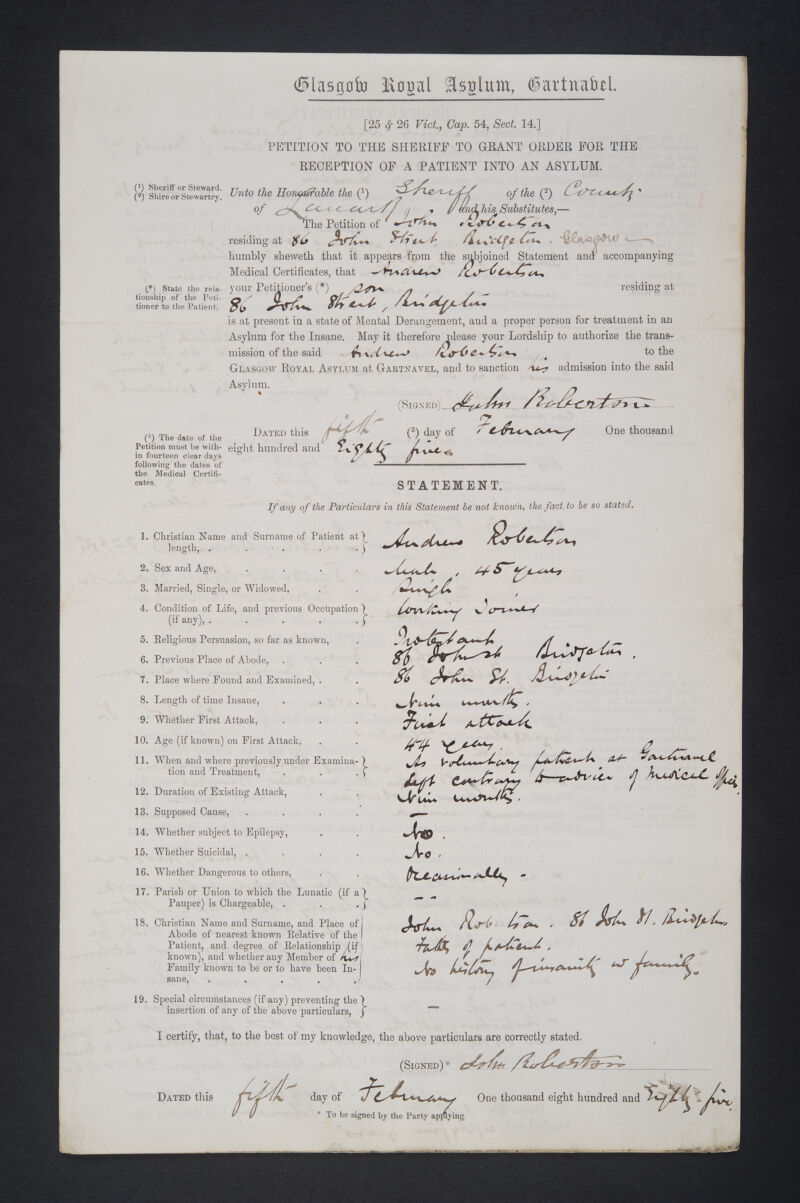 Glasgow Royal Asylum, Gartnavel.
[25 & 26 Vict., Cap. 54, Sect. 14.]
PETITION TO THE SHERIFF TO GRANT ORDER FOR THE
RECEPTION OF A PATIENT INTO AN ASYLUM.
(¹) Sheriff or Steward.
(²) Shire or Stewartry.
Unto the Honourable the (¹) Sheriff of the (²) County
of Lanark, and his Substitutes,—
The Petition of John Robertson
residing at 86 John Street Bridgeton. Glasgow
humbly sheweth that it appears from the subjoined Statement and accompanying
Medical Certificates, that Andrew Robertson
(*) State the rela-
tionship of the Peti-
tioner to the Patient.
your Petitioner's (*) son residing at
86 John Street, Bridgeton
is at present in a state of Mental Derangement, and a proper person for treatment in an
Asylum for the Insane. May it therefore please your Lordship to authorize the trans-
mission of the said Andrew Robertson, to the
GLASGOW ROYAL ASYLUM AT GARTNAVEL, and to sanction his admission into the said
Asylum.
(SIGNED) John Robertson
(³) The date of the
Petition must be with-
in fourteen clear days
following the dates of
the Medical Certifi-
cates.
DATED this fifth (³) day of February One thousand
eight hundred and Eighty five.
STATEMENT.
If any of the Particulars in this Statement be not known, the fact to be so stated.
1. Christian Name and Surname of Patient at length, . . . . . Andrew Robertson
2. Sex and Age, . . . . Male, 45 years
3. Married, Single, or Widowed, . . Single
4. Condition of Life, and previous Occupation (if any), . . . . . Working Joiner
5. Religious Persuasion, so far as known, . Protestant
6. Previous Place of Abode, . . . 86 John St Bridgeton.
7. Place where Found and Examined, . . 86 John St. Bridgeton
8. Length of time Insane, . . . Nine months.
9. Whether First Attack, . . . First attack
10. Age (if known) on First Attack, . . 44 years.
11. When and where previously under Examina-tion and Treatment, . . . As voluntary patient at Gartnavel
left contrary to advice of Medical Officer.
12. Duration of Existing Attack, . . Nine months.
13. Supposed Cause, . . . . —
14. Whether subject to Epilepsy, . . No.
15. Whether Suicidal, . . . . No.
16. Whether Dangerous to others, . . Occasionally -
17. Parish or Union to which the Lunatic (if a Pauper) is Chargeable, . . . - -
18. Christian Name and Surname, and Place of
Abode of nearest known Relative of the
Patient, and degree of Relationship (if
known), and whether any Member of his
Family known to be or to have been In-
sane, . . . . .
John Robertson. 86 John St. Bridgeton
Father of patient.
No history of insanity in family.
19. Special circumstances (if any) preventing the insertion of any of the above particulars, —
I certify, that, to the best of my knowledge, the above particulars are correctly stated.
(SIGNED)* John Robertson
DATED this fifth day of February One thousand eight hundred and Eighty-five.
* To be signed by the Party applying.